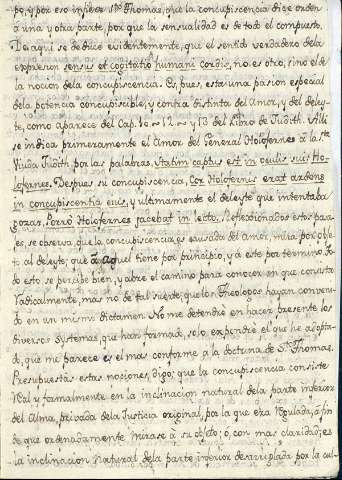 po, y por eso infiere Sto. Thomas, que la concupiscencia dice orden
à una y otra parte, por que la sensualidad es de todo el compuesto.
De aqui se deduce evidentemente, que el sentido verdadero de la
expresion sensus et cogitatio humani cordis, no es otro, sino el de
la nocion de la concupiscencia. Es, pues, esta una pasion especial
de la potencia concupiscible, y contra distinta del Amor, y del deley-
te, como aparece del Cap. 10 ~ 12 ~ y 13 del Libro de Judith. Alli
se indica primeramente el Amor del General Holofernes à la Sta.
Viuda Judith por las palabras, Statim captus est in oculis suis Ho-
lofernes. Despues su concupiscencia, Cor Holofernis erat ardens
in concupiscentia eius, y ultimamente el deleyte que intentaba
gozar, Porrò Holofernes jacebat in lecto. Reflexionados estos para-
jes, se observa, que la concupiscencia, es causada del amor, mira por obje-
to al deleyte; que à aquel tiene por principio, y à este por termino. To-
do esto se percibe bien, y abre el camino para conocer en que consista
radicalmente, mas no de tal suerte, que los Theologos hayan conveni-
do en un mismo dictamen. No me detendre en hacer presente los
diversos systemas, que han formado, solo expondrè el que he adopta-
do, que me parece es el mas conforme a la doctrina de Sto. Thomas.
Presupuestas estas nociones, digo; que la concupiscencia consiste
real y formalmente en la inclinacion natural de la parte inferior
del Alma, privada de la Justicia original, por la que era regulada, à fin
de que ordenadamente mirase a su objeto; ò, con mas claridad; es
la inclinacion natural de la parte inferior desarreglada por la cul-